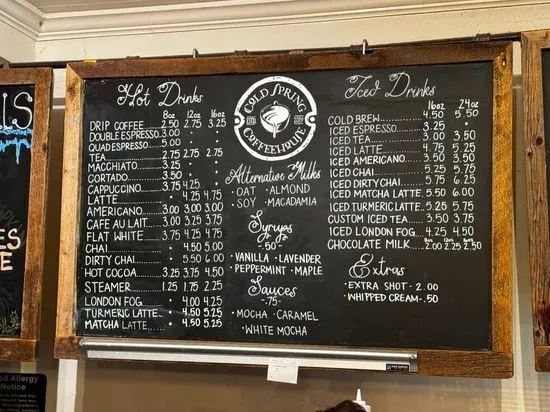 Hot Drinks
8oz 12oz 16oz
DRIP COFFEE 2.50 2.75 3.25
DOUBLE ESPRESSO 3.00
QUAD ESPRESSO 5.00
TEA 2.75 2.75 2.75
MACCHIATO 3.25
CORTADO 3.50
CAPPUCCINO 3.75 4.25 •
LATTE • 4.25 4.75
AMERICANO 3.00 3.00 3.00
CAFE AU LAIT 3.00 3.25 3.75
FLAT WHITE 3.75 4.25 4.75
CHAI • 4.50 5.00
DIRTY CHAI • 5.50 6.00
HOT COCOA 3.25 3.75 4.50
STEAMER 1.25 1.75 2.25
LONDON FOG • 4.00 4.25
TURMERIC LATTE • 4.50 5.25
MATCHA LATTE • 4.50 5.25
COLD SPRING
COFFEEHOUSE
Alternative Milks
OAT • ALMOND
• SOY • MACADAMIA
Syrups
.50
• VANILLA • LAVENDER
• PEPPERMINT • MAPLE
Sauces
-.75-
• MOCHA • CARAMEL
• WHITE MOCHA
Iced Drinks
16oz 24oz
COLD BREW 4.50 5.50
ICED ESPRESSO 3.25 •
ICED TEA 3.00 3.50
ICED LATTE 4.75 5.25
ICED AMERICANO 3.50 3.50
ICED CHAI 5.25 5.75
ICED DIRTY CHAI 5.75 6.25
ICED MATCHA LATTE 5.50 6.00
ICED TURMERIC LATTE 5.25 5.75
CUSTOM ICED TEA 3.50 3.75
ICED LONDON FOG 4.50 5.25
8oz 12oz 16oz
CHOCOLATE MILK 2.00 2.25 2.50
Extras
• EXTRA SHOT • 2.00
• WHIPPED CREAM • .50
Notice